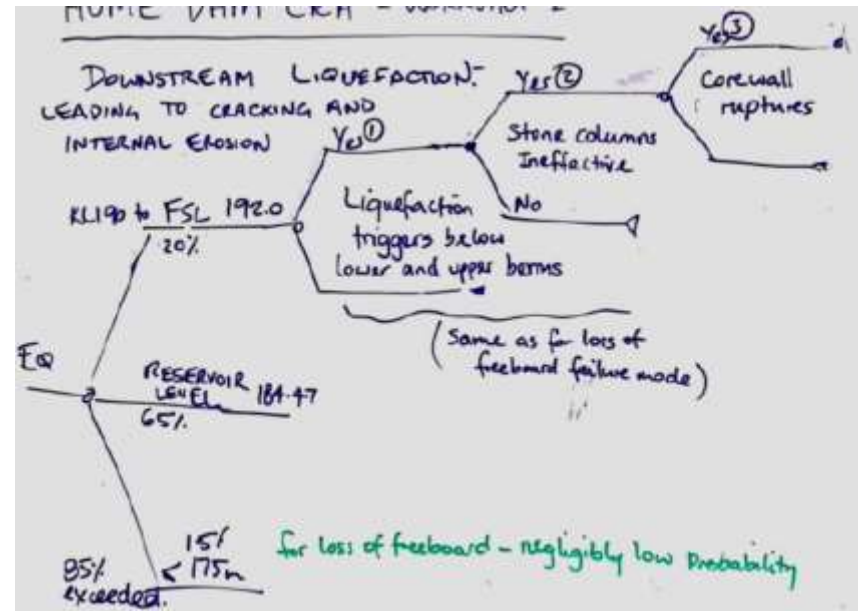 HUME DAM CRA - WORKSHOP 2
DOWNSTREAM LIQUEFACTION:-
LEADING TO CRACKING AND
INTERNAL EROSION
Yes ①
Yes ②
Yes ③
Corewall
ruptures
Stone columns
Ineffective
No
RL190 to FSL 192.0
20%
Liquefaction
triggers below
lower and upper berms
(Same as for loss of
freeboard failure mode)
EQ
RESERVOIR
LEVEL 184.47
65%
15%
< 175m
85%
exceeded.
for loss of freeboard - negligibly low probability